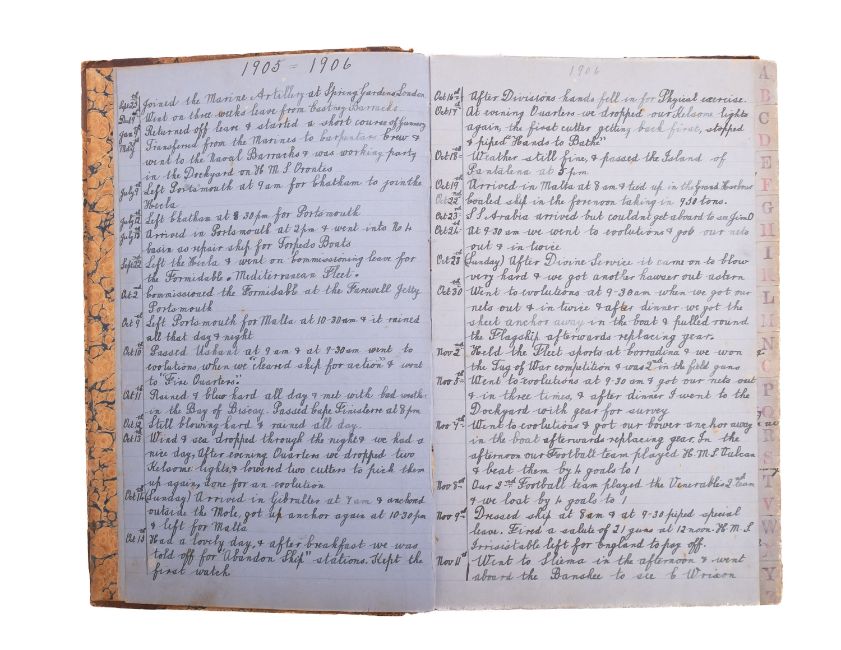 1905 = 1906
Sept 23rd Joined the Marine Artillery at Spring Gardens London
Went on three weeks leave from Eastney Barracks
Jan Returned off leave & started a short course of Gunnery
May Transferred from the Marines to Carpenters Crew &
went to the Naval Barracks & was working party
in the Dockyard on H M S Orontes
July 3rd Left Portsmouth at 9 am for Chatham to join the
Hecla
July 12th Left Chatham at 8 30 pm for Portsmouth
July 13th Arrived in Portsmouth at 2 pm & went into No 4
basin as repair ship for Torpedo Boats
Sept 22nd Left the Hecla & went on commissioning leave for
the Formidable. Mediterranean Fleet.
Oct 2nd Commissioned the Formidable at the Farewell Jetty
Portsmouth
Oct 9th Left Portsmouth for Malta at 10-30 am & it rained
all that day & night
Oct 10th Passed Ushant at 9 am & at 9-30 am went to
evolutions when we "cleared ship for action" & went
to "Fire Quarters."
Oct 11th Rained & blew hard all day & met with bad weath
in the Bay of Biscay. Passed Cape Finisterre at 8 pm
Oct 12th Still blowing hard & rained all day
Oct 13th Wind & sea dropped through the night & we had a
nice day. After evening Quarters we dropped two
Kelsome lights, & lowered two cutters to pick them
up again, done for an evolution
Oct 14th (Sunday) Arrived in Gibralter at 7 am & anchored
outside the Mole, got up anchor again at 10-30 pm
& left for Malta
Oct 15th Had a lovely day, & after breakfast we was
told off for "Abandon Ship" stations. Kept the
first watch
1906
Oct 16th After Divisions hands fell in for Phyical exercise.
Oct 17th At evening Quarters we dropped our Kelsome lights
again, the first cutter getting back first, stopped
& piped "Hands to Bathe"
Oct 18th Weather still fine, & passed the Island of
Pantalena at 5 pm
Oct 19th Arrived in Malta at 8 am & tied up in the Grand Harbour
Oct 22nd Coaled ship in the forenoon taking in 950 tons.
Oct 23rd S S Arabia arrived but couldnt get aboard to see Jim D
Oct 24th At 9-30 am we went to evolutions & got our nets
out & in twice
Oct 28th (Sunday) After Divine Service it came on to blow
very hard & we got another hawser out astern
Oct 30th Went to evolutions at 9-30 am when we got our
nets out & in twice & after dinner we got the
sheet anchor away in the boat & pulled round
the Flagship afterwards replacing gear.
Nov 2nd Held the Fleet sports at Corradina & we won
the Tug of War competition & was 2nd in the field guns
Nov 3rd Went to evolutions at 9-30 am & got our nets out
& in three times, & after dinner I went to the
Dockyard with gear for survey
Nov 7th Went to evolutions & got our bower anchor away
in the boat afterwards replacing gear. In the
afternoon our Football team played H M S Vulcan
& beat them by 4 goals to 1
Nov 8th Our 2nd Football team played the Venerables 2nd team
& we lost by 4 goals to 1
Nov 9th Dressed ship at 8 am & at 9-30 piped special
leave. Fired a salute of 21 guns at 12 noon. H M S
Irrisistable left for England to pay off.
Nov 11th Went to Sliema in the afternoon & went
aboard the Banshee to see C Wrixon
A
B
C
D
E
F
G
H
I
K
L
M
N
O
P
Q
R
S
T
V
W
Y
Z